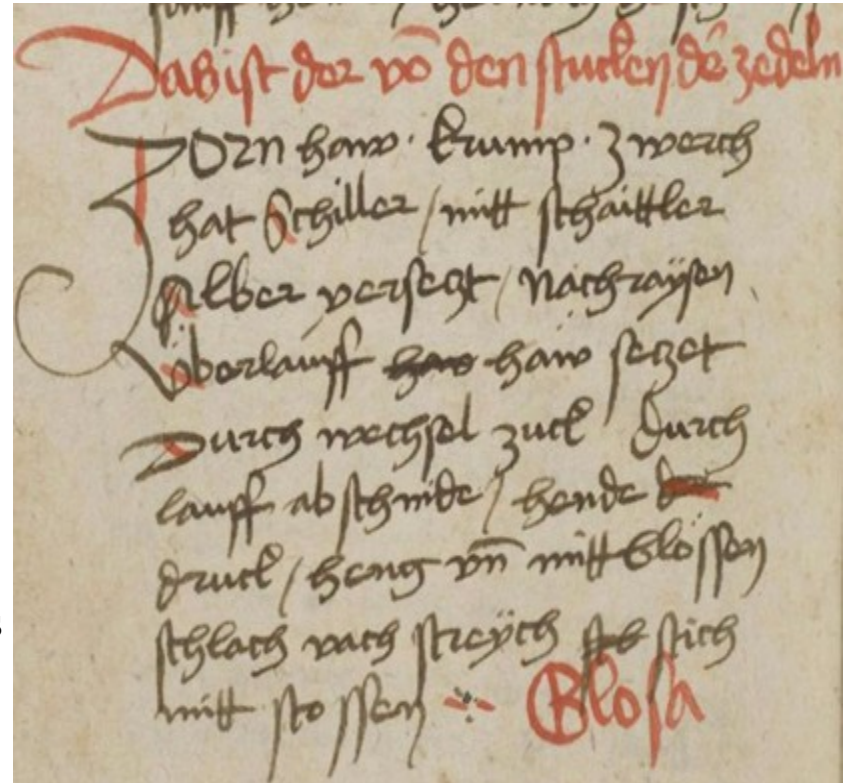 Das ist der võ den stucken dē zedeln
Zorn haw · krump · zwerch
hat Schiller / mitt schaittler
Alber versetzt / Nachraÿsen
Überlauff haw häw setzet
Durch wechsel zuck durch
lauff abschnide / hende
druck / heng vñ mitt blössen
schlach vach streÿch stich
mitt stossen
Glosa